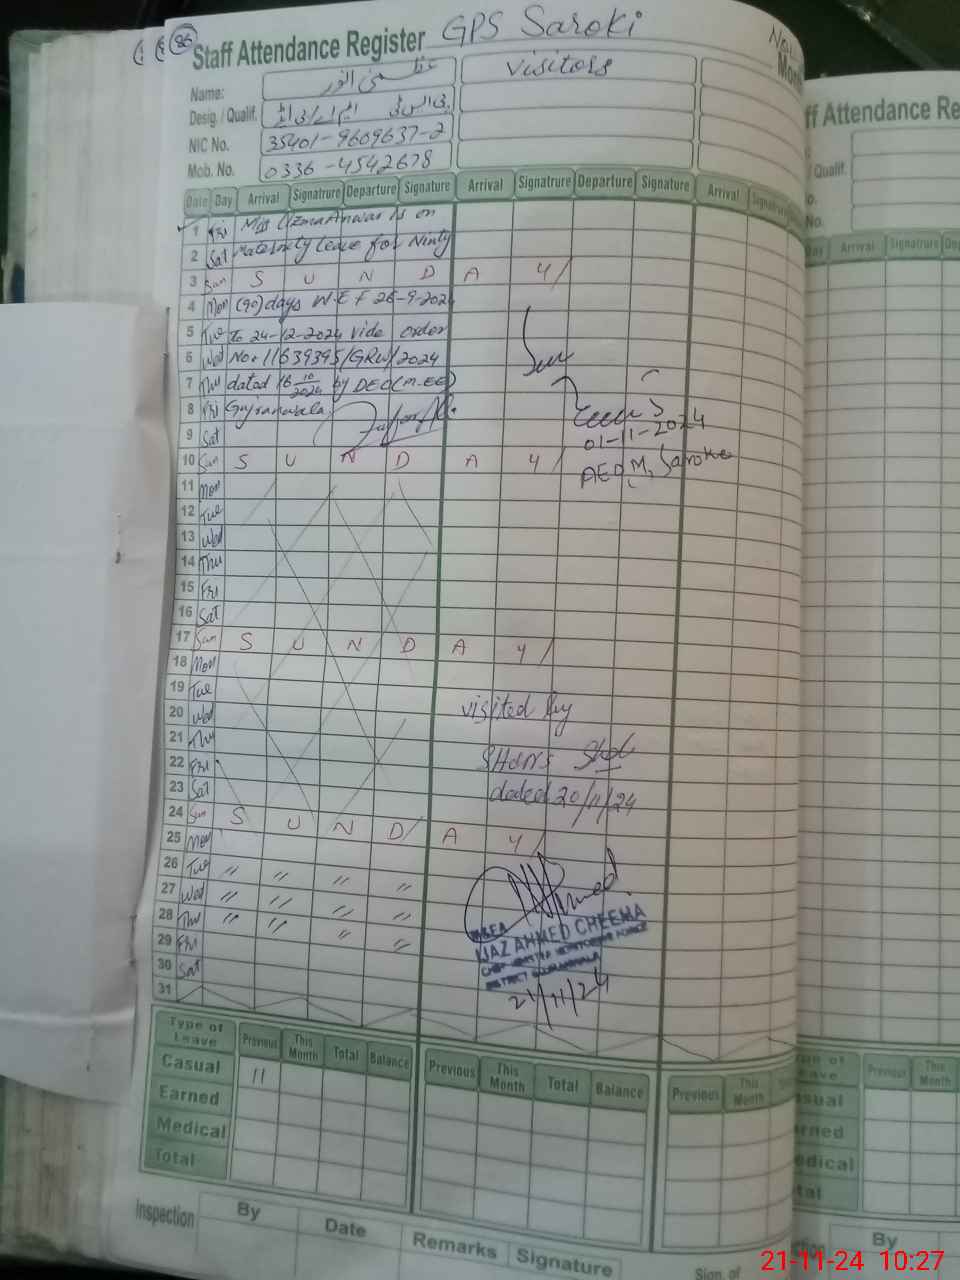 86
Staff Attendance Register GPS Saroki
Nov
Name: عظمیٰ انور
Visitors
Desig. / Qualif.
NIC No. 35401-9609637-2
Mob. No. 0336-4542678
Date Day Arrival Signatrure Departure Signature Arrival Signatrure Departure Signature Arrival
1 Fri Miss UzmaAnwar is on
2 Sat Maternity leave for Ninty
3 Sun S U N D A Y/
4 Mon (90) days W.E.F 26-9-2024
5 Tue to 24-12-2024 vide order
6 Wed No. 11639395/GRW/2024
7 Thu dated 16 10/2024 by DEO(M.EE)
8 Fri Gujranwala
9 Sat
01-11-2024
10 Sun S U N D A Y/
AEO M, Saroke
11 Mon
12 Tue
13 Wed
14 Thu
15 Fri
16 Sat
17 Sun S U N D A Y/
18 Mon
19 Tue
20 Wed visited by
21 Thu
22 Fri
23 Sat dated 20/11/24
24 Sun S U N D/ A Y/
25 Mon
26 Tue " " " "
27 Wed " " " "
28 Thu " " " "
29 Fri
30 Sat
31
IJAZ AHMED CHEEMA
DISTRICT GUJRANWALA
21/11/24
Type of Leave Previous This Month Total Balance Previous This Month Total Balance Previous This Month
Casual 11
Earned
Medical
Total
Inspection By Date Remarks Signature Sign. of
ff Attendance Re
/ Qualif.
No.
Day Arrival Signatrure
Previous This Month
By
21-11-24 10:27